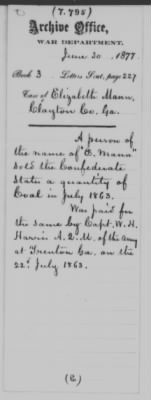 (7.795)
Archive Office,
WAR DEPARTMENT.
June 30 1877
Book 3 Letters Sent, page 227
Case of Elizabeth Mann,
Clayton Co. Ga.
A person of
the name of "E. Mann"
sold the Confederate
States a quantity of
Coal in July 1863.
Was paid for
the same by Capt. W. H.
Harris A. Q. M. of the Army
at Trenton Ga. on the
22d July 1863.